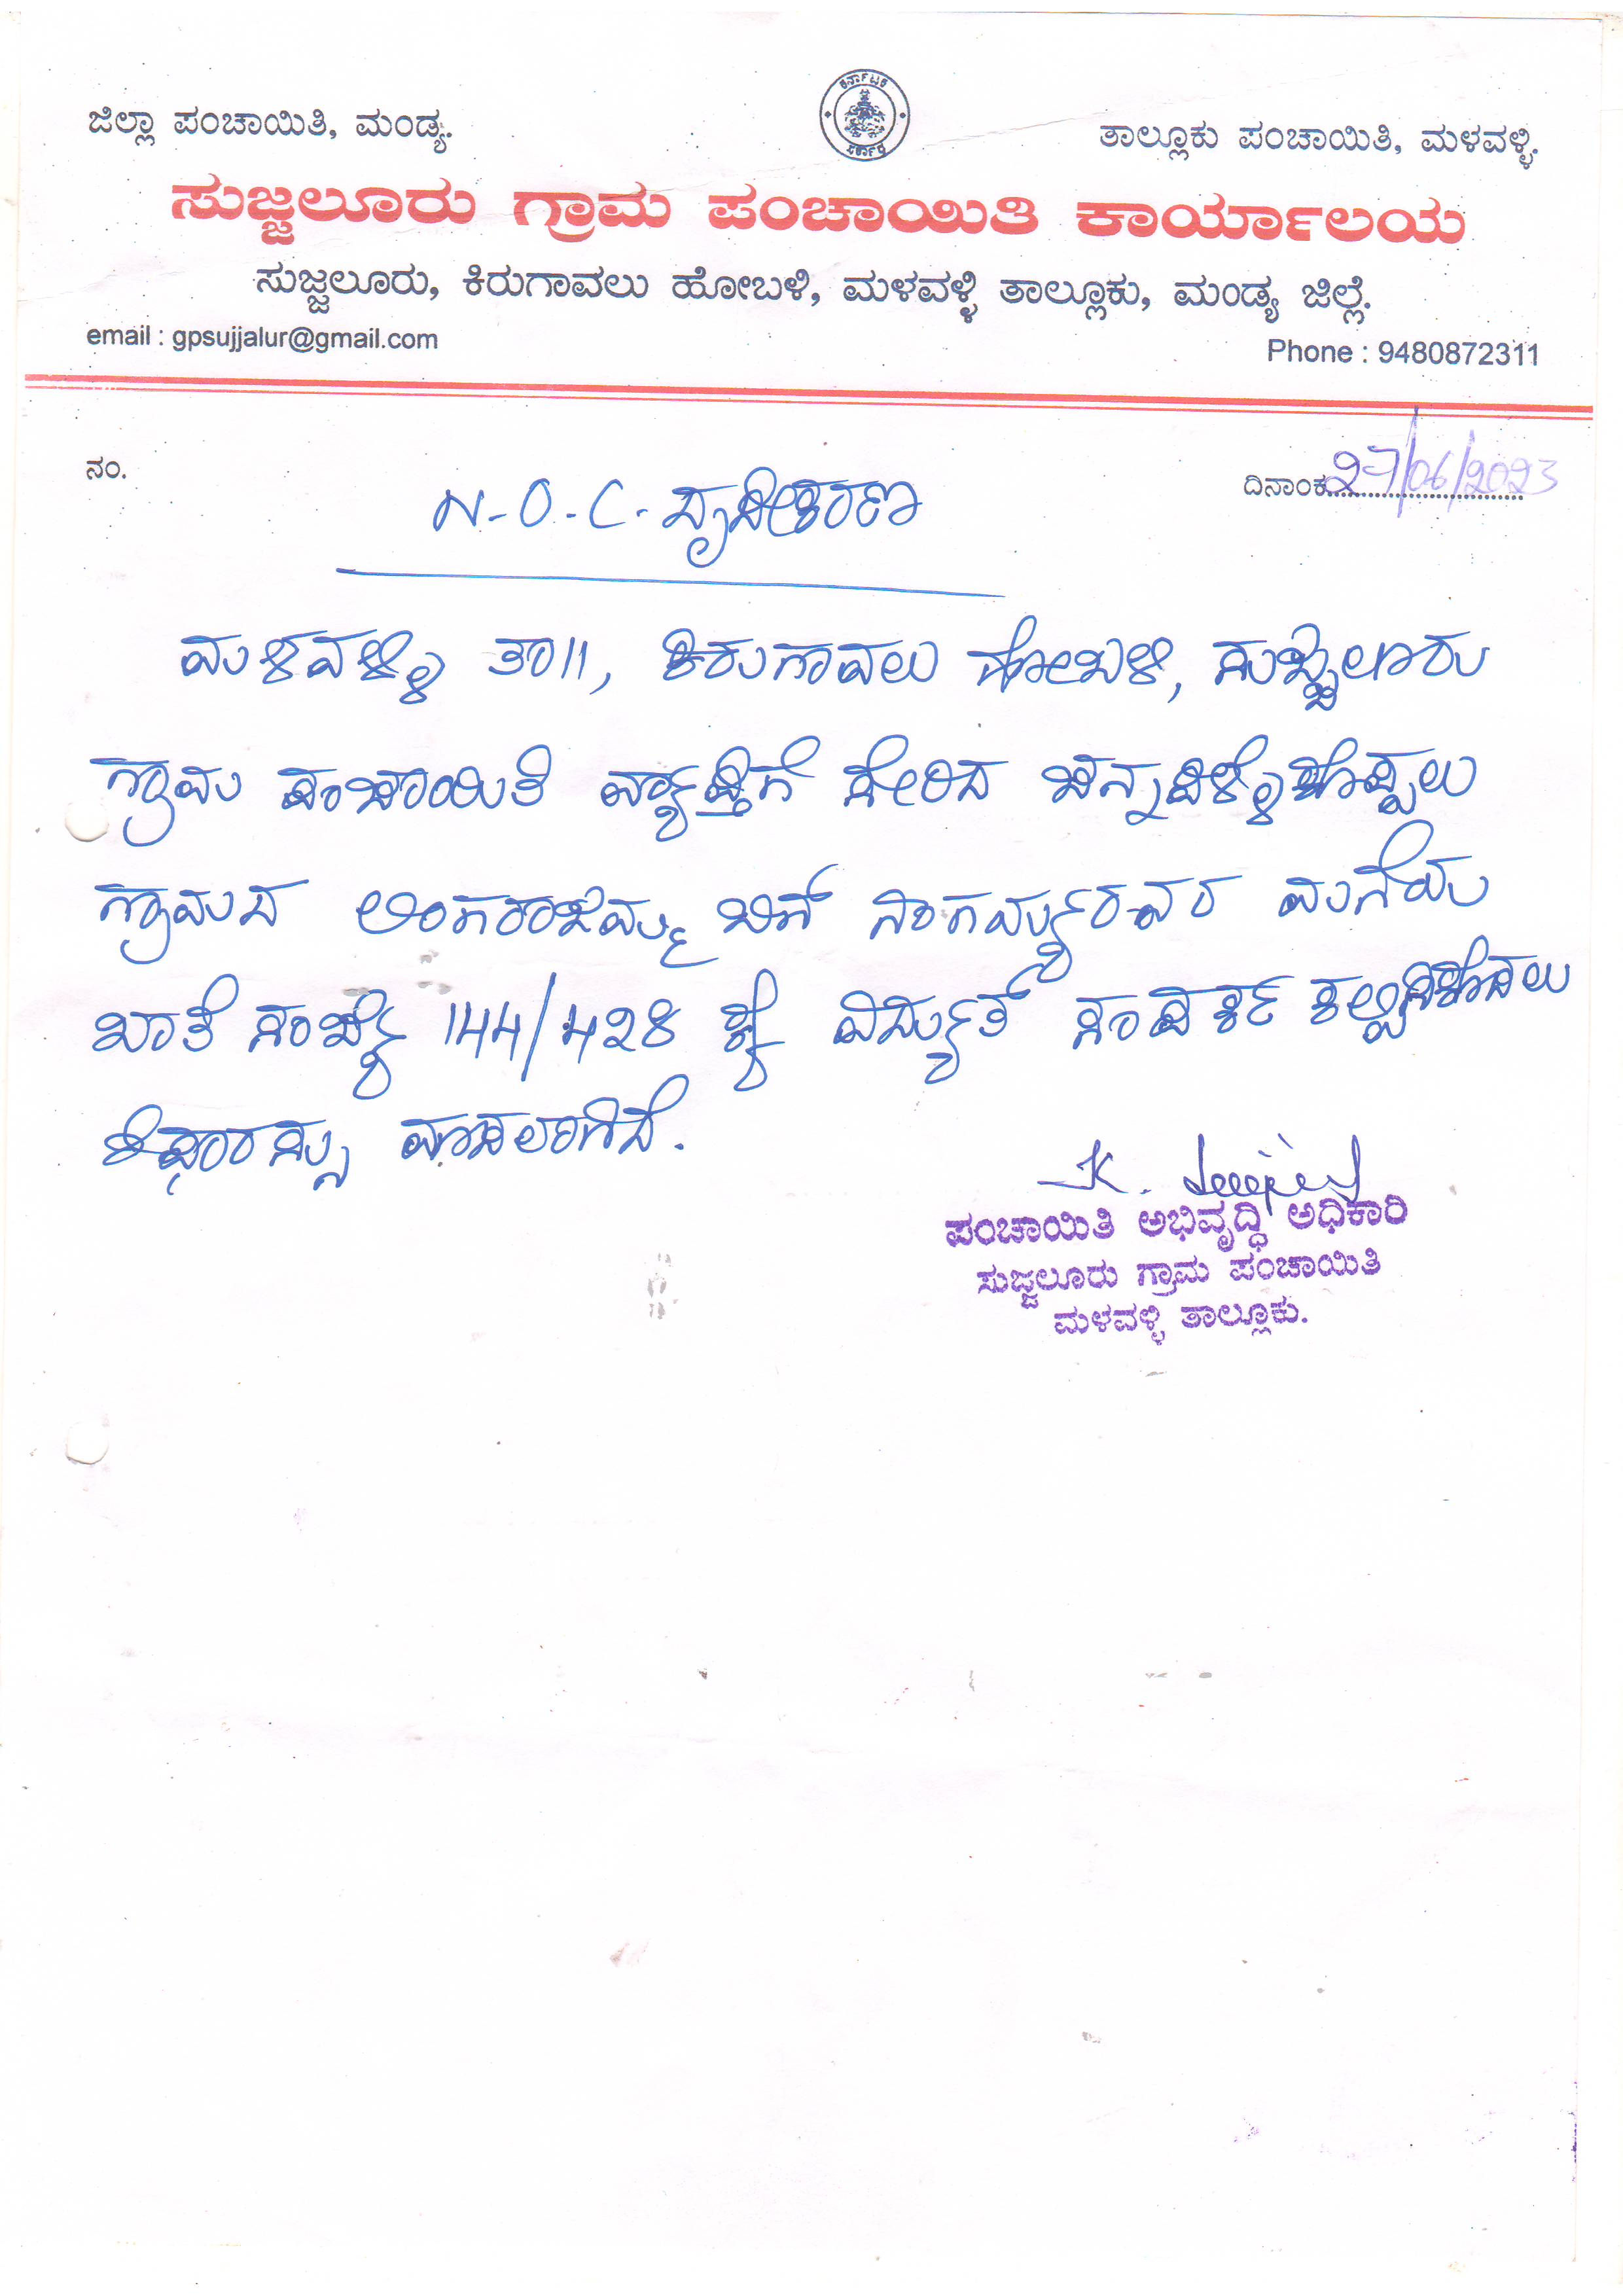 ಕರ್ನಾಟಕ ಸರ್ಕಾರ
ಜಿಲ್ಲಾ ಪಂಚಾಯಿತಿ, ಮಂಡ್ಯ.
ತಾಲ್ಲೂಕು ಪಂಚಾಯಿತಿ, ಮಳವಳ್ಳಿ.
ಸುಜ್ಜಲೂರು ಗ್ರಾಮ ಪಂಚಾಯಿತಿ ಕಾರ್ಯಾಲಯ
ಸುಜ್ಜಲೂರು, ಕಿರುಗಾವಲು ಹೋಬಳಿ, ಮಳವಳ್ಳಿ ತಾಲ್ಲೂಕು, ಮಂಡ್ಯ ಜಿಲ್ಲೆ.
email : gpsujjalur@gmail.com
Phone : 9480872311
ನಂ.
ದಿನಾಂಕ 27/06/2023
N-O-C- ದೃಢೀಕರಣ
ಮಳವಳ್ಳಿ ತಾ||, ಕಿರುಗಾವಲು ಹೋಬಳಿ, ಸುಜ್ಜಲೂರು
ಗ್ರಾಮ ಪಂಚಾಯಿತಿ ವ್ಯಾಪ್ತಿಗೆ ಸೇರಿದ ಚನ್ನಪಿಳ್ಳೆಕೊಪ್ಪಲು
ಗ್ರಾಮದ ಲಿಂಗರಾಜಮ್ಮ ಬಿನ್ ರವರ ಮನೆಯ
ಖಾತೆ ಸಂಖ್ಯೆ 144/428 ಕ್ಕೆ ವಿದ್ಯುತ್ ಸಂಪರ್ಕ ಕಲ್ಪಿಸಿಕೊಡಲು
ಶಿಫಾರಸ್ಸು ಮಾಡಲಾಗಿದೆ.
ಪಂಚಾಯಿತಿ ಅಭಿವೃದ್ಧಿ ಅಧಿಕಾರಿ
ಸುಜ್ಜಲೂರು ಗ್ರಾಮ ಪಂಚಾಯಿತಿ
ಮಳವಳ್ಳಿ ತಾಲ್ಲೂಕು.